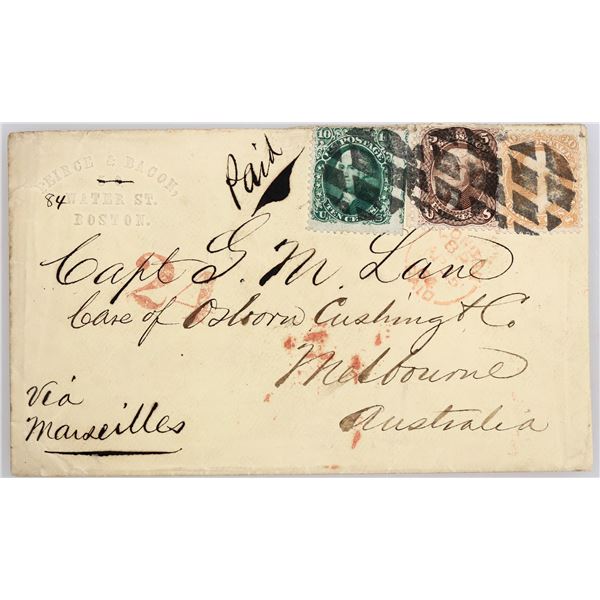 PEIRCE & BACON,
84
WATER ST.
BOSTON.
Paid
10 U.S. POSTAGE
TEN CENTS
5 5
24
Capt G. M. Lane
Care of Osborn Cushing & Co
Melbourne
Australia
Via
Marseilles
PAID